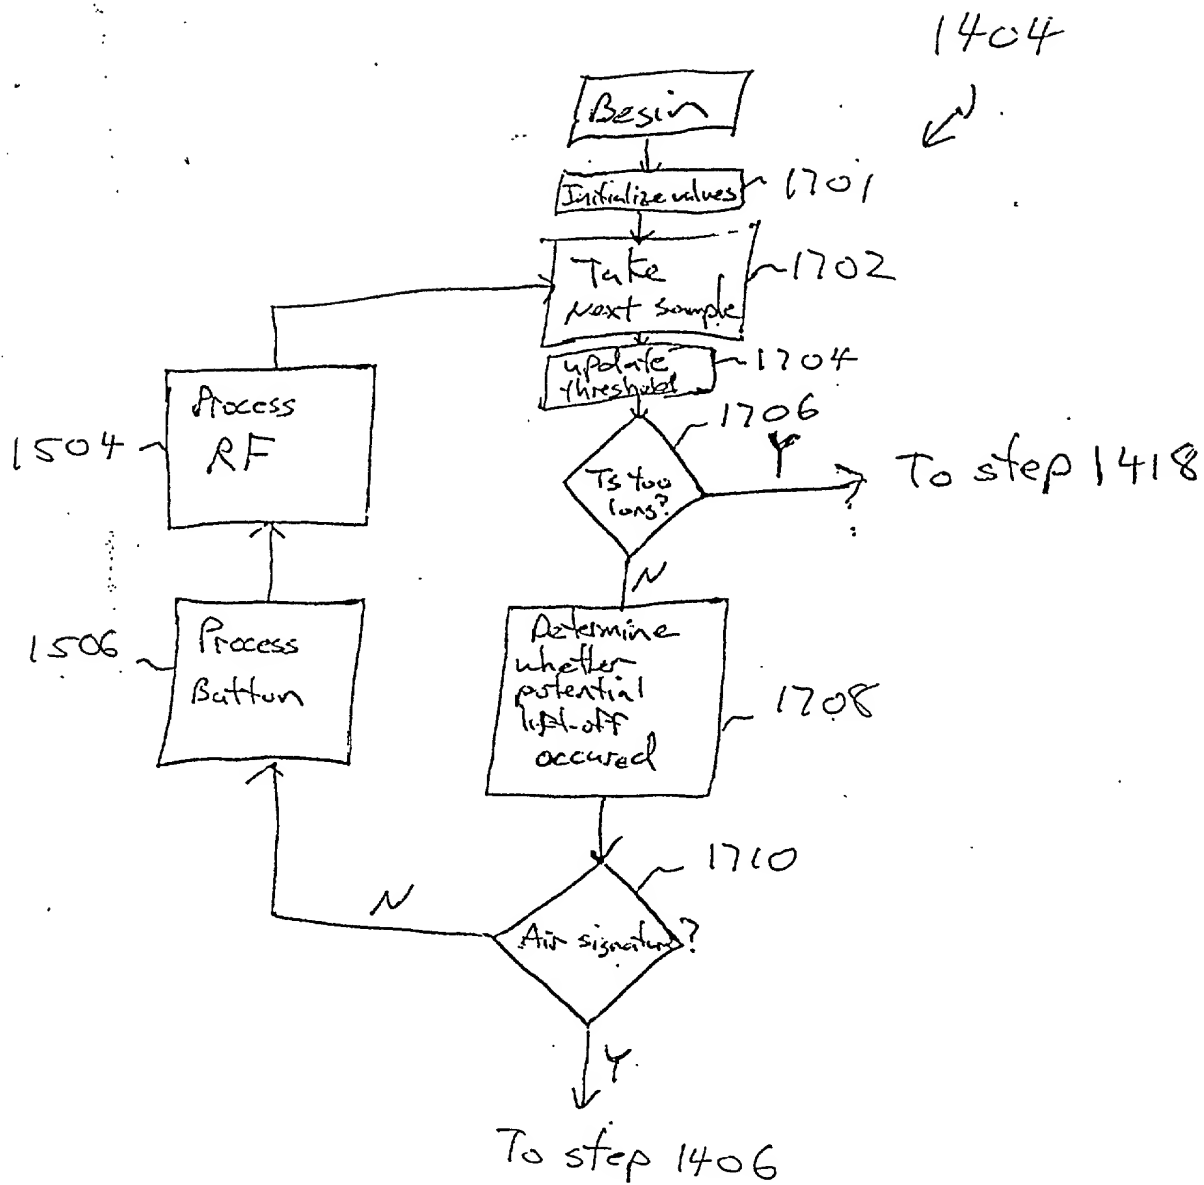 1404
Begin
Initialize values
1701
Take
Next sample
1702
update
threshold
1704
1706
Ts too
long?
Y
To step 1418
N
Process
RF
1504
Process
Button
1506
Determine
whether
potential
lift-off
occured
1708
1710
Air signature?
N
Y
To step 1406